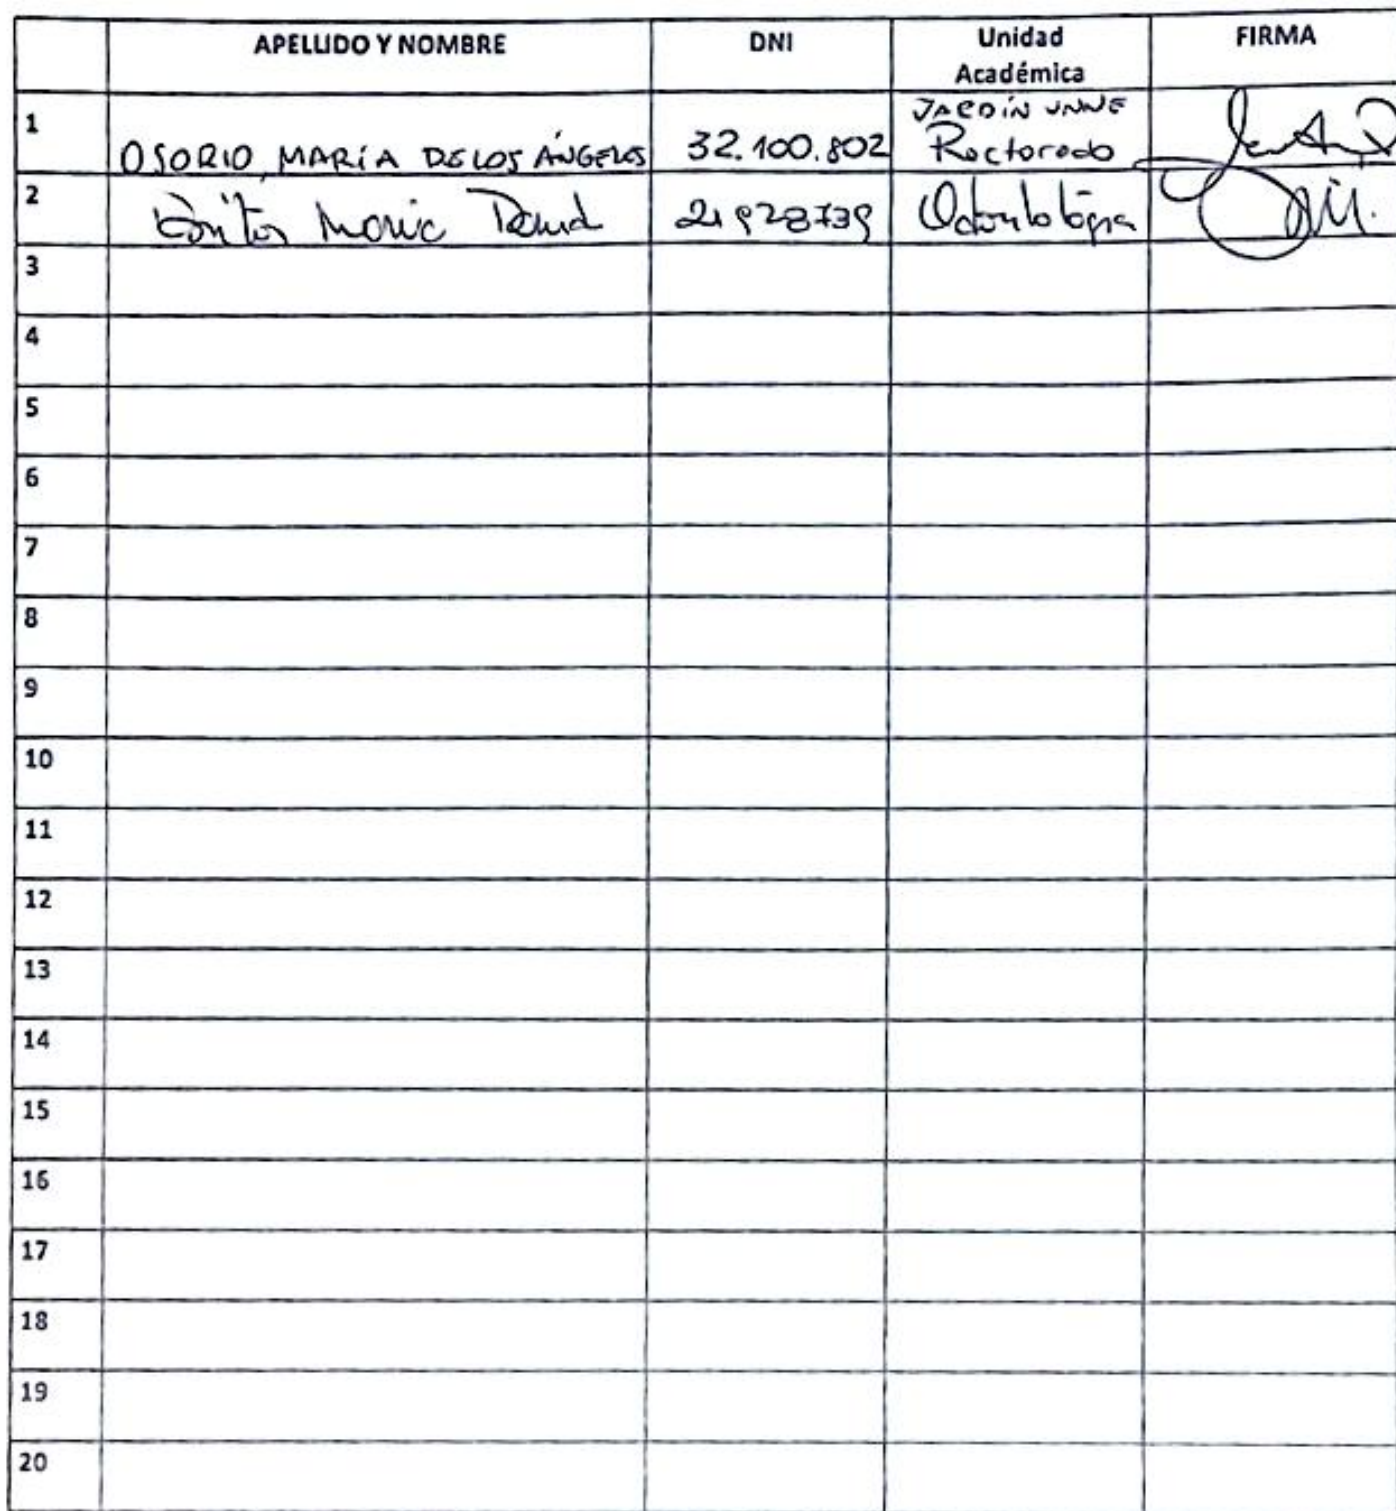 APELLIDO Y NOMBRE DNI Unidad Académica FIRMA
1 OSORIO, MARÍA DE LOS ÁNGELES 32.100.802 JARDÍN UNNE Rectorado
2 Maria 21928739 Odontología
3
4
5
6
7
8
9
10
11
12
13
14
15
16
17
18
19
20